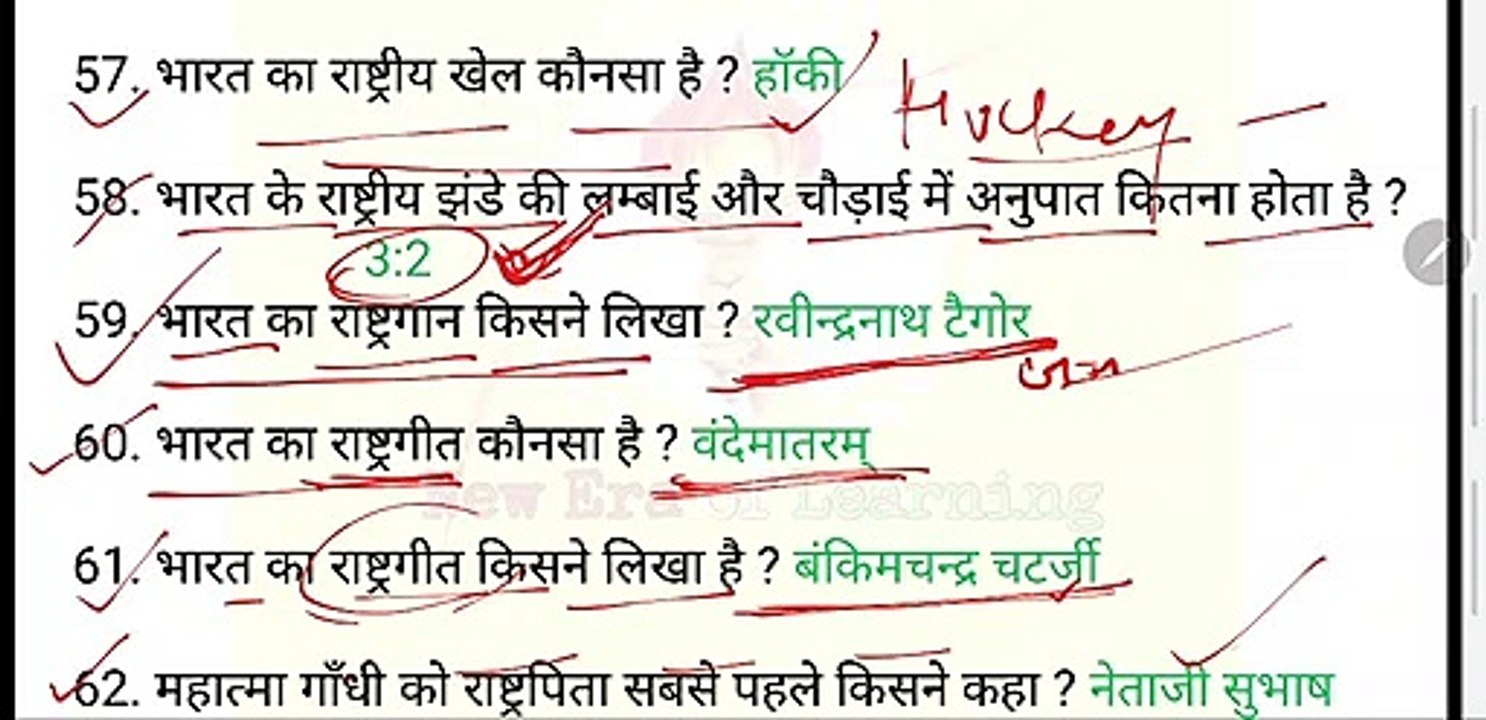 57. भारत का राष्ट्रीय खेल कौनसा है ? हॉकी Hockey
58. भारत के राष्ट्रीय झंडे की लम्बाई और चौड़ाई में अनुपात कितना होता है ?
3:2
59. भारत का राष्ट्रगान किसने लिखा ? रवीन्द्रनाथ टैगोर
जन
60. भारत का राष्ट्रगीत कौनसा है ? वंदेमातरम्
New Era of Learning
61. भारत का राष्ट्रगीत किसने लिखा है ? बंकिमचन्द्र चटर्जी
62. महात्मा गाँधी को राष्ट्रपिता सबसे पहले किसने कहा ? नेताजी सुभाष